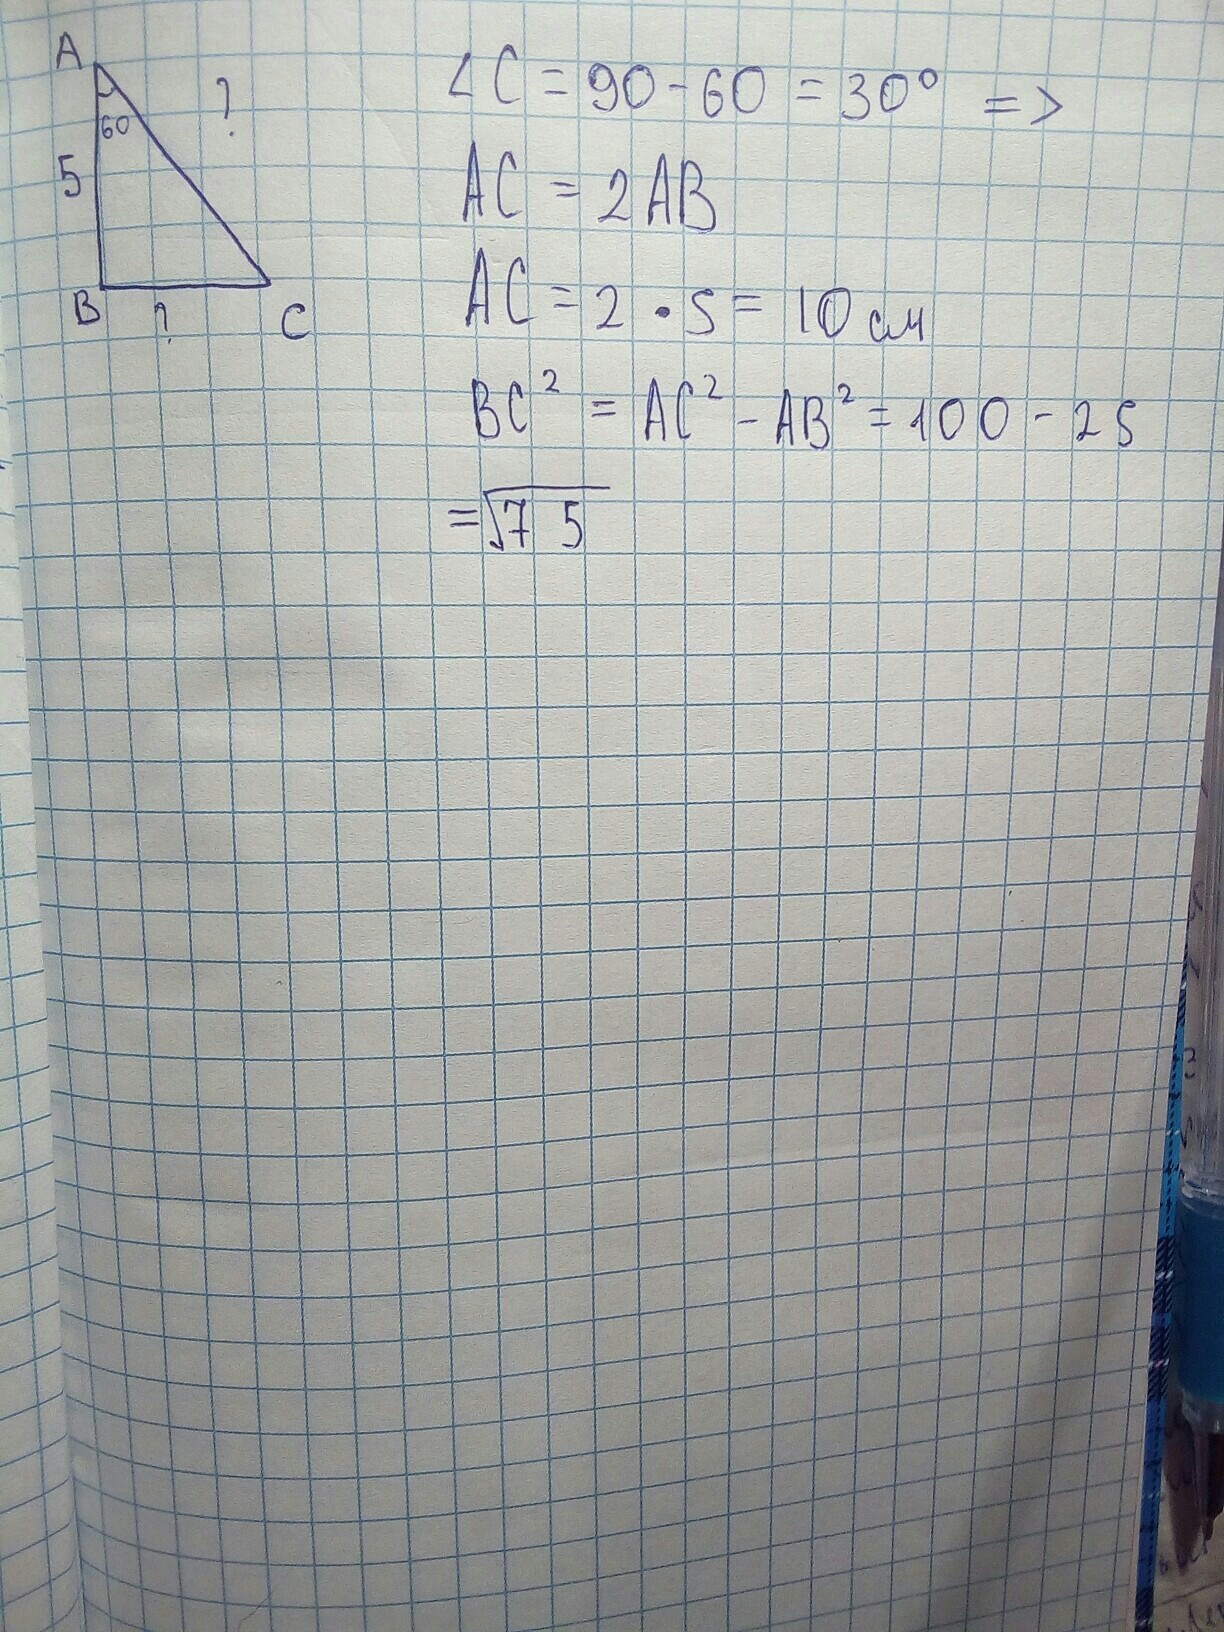 A
60
?
5
B
?
C
∠C = 90 - 60 = 30° =>
AC = 2AB
AC = 2 • 5 = 10 см
BC² = AC² - AB² = 100 - 25
= √75